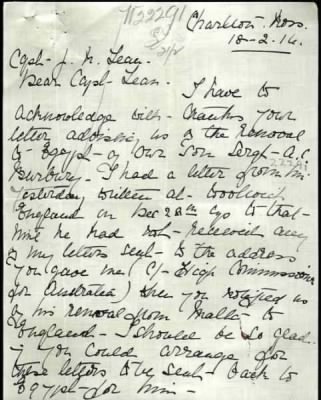 Charlton, Ross.
18-2-16.
Capt- J. M. Lean.
Dear Capt- Lean.
I have to
acknowledge with- thanks your
letter advising us of the removal
to Egypt- of our son Sergt- A.C.
Burbury. I had a letter from him
yesterday written at- Woolwich
England on Dec 28th up to that-
time he had not- received any
of my letters sent- to the address
you gave me (C/- High Commissioner
for Australia) when you notified us
of his removal from Malta- to
England- I should be so glad
if you could arrange for
these letters to be sent- back to
Egypt- for him-